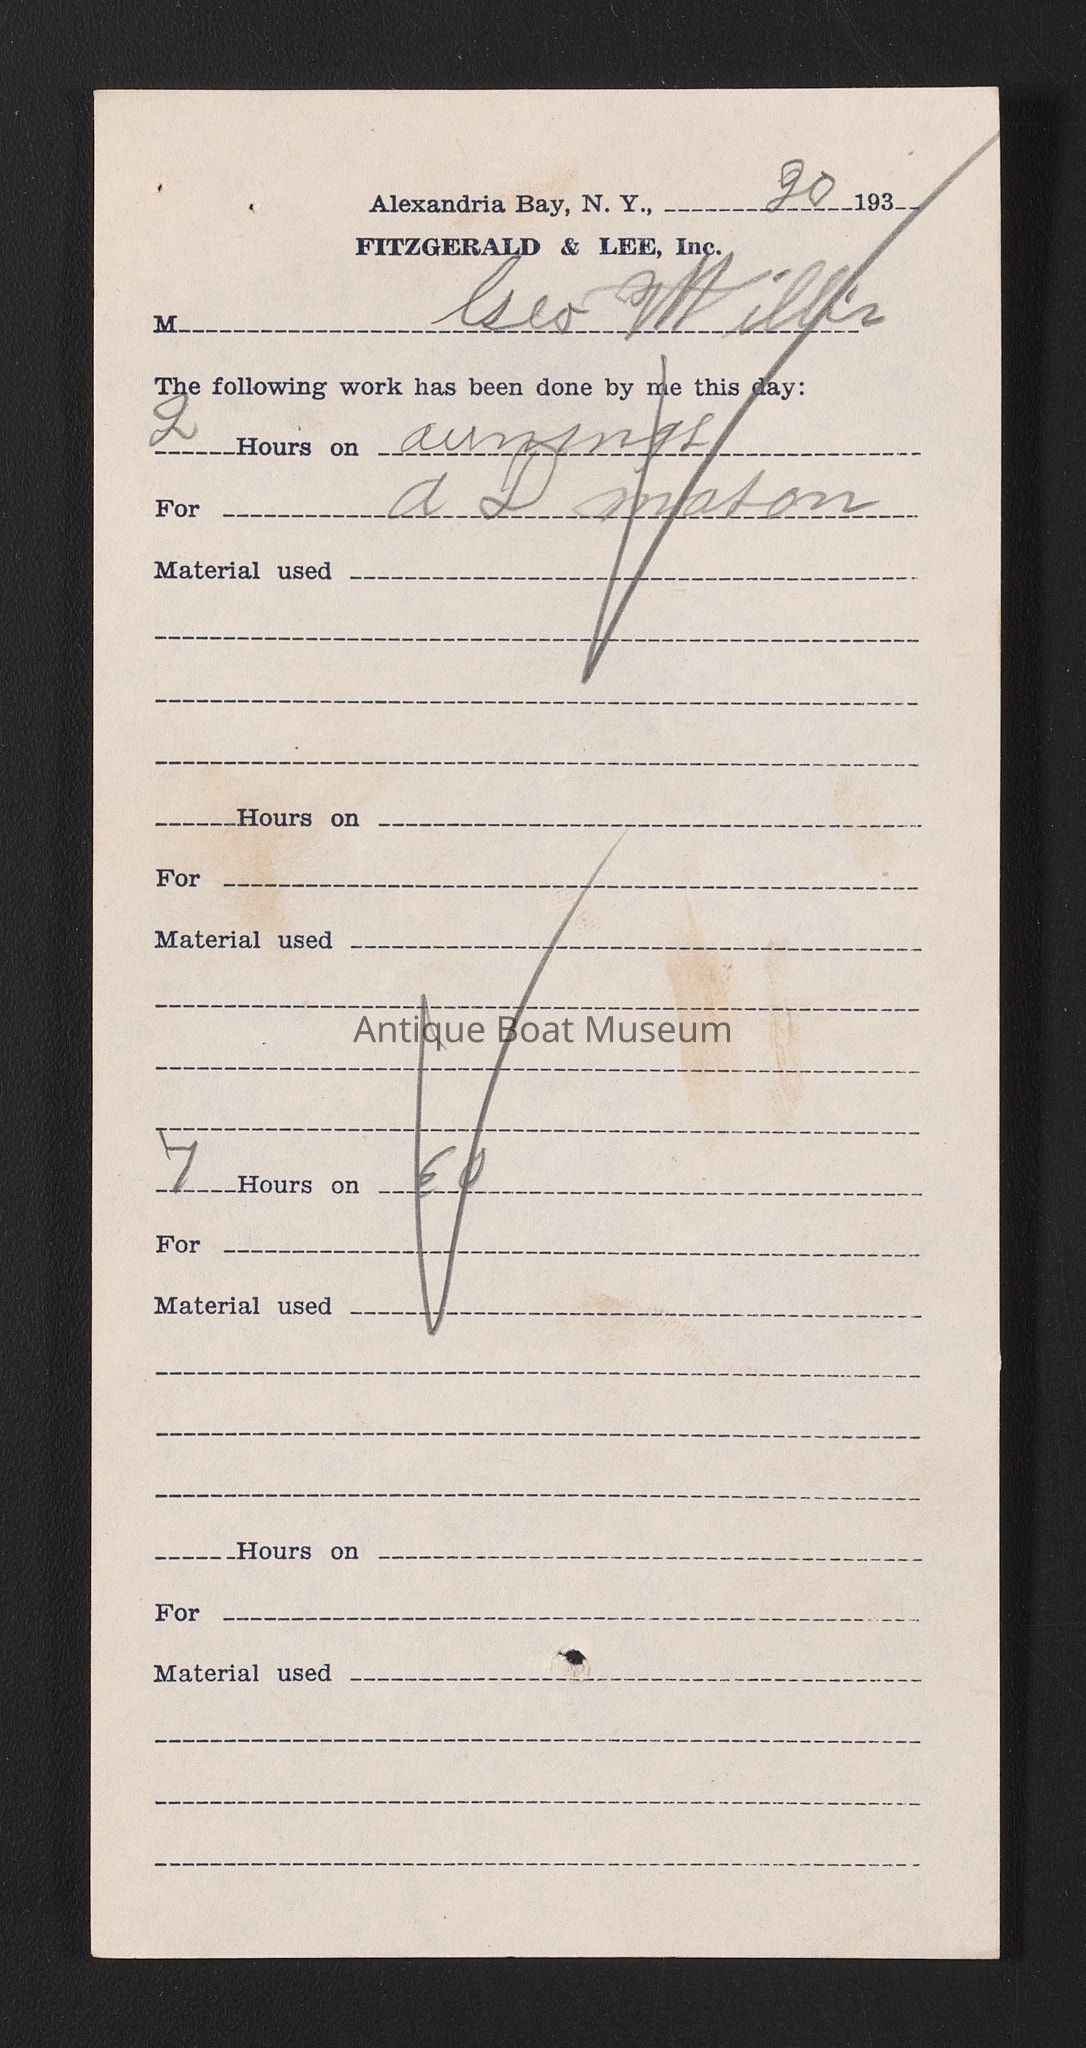 Alexandria Bay, N. Y., 30 193
FITZGERALD & LEE, Inc.
M Geo Willis
The following work has been done by me this day:
2 Hours on awnings
For
Material used
Hours on
For
Material used
Antique Boat Museum
7 Hours on
For
Material used
Hours on
For
Material used